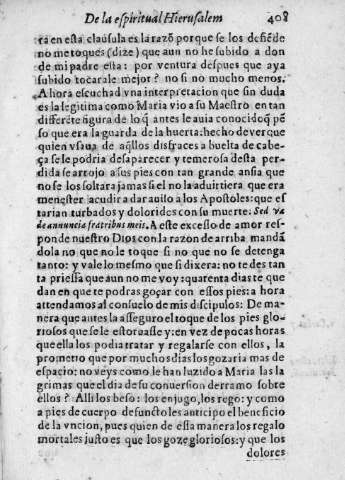 De la espiritual Hierusalem 408
ra en esta clausula es la razõ porque se los defiẽde
no me toques (dize) que aun no he subido a don
de mi padre esta: por ventura despues que aya
subido tocarale mejor? no si no mucho menos.
Ahora escuchad vna interpretacion que sin duda
es la legitima como Maria vio a su Maestro en tan
differẽte figura de lo q̃ antes le auia conocido q̃ pẽ
so que era la guarda de la huerta: hecho de ver que
quien vsaua de aq̃llos disfraces a buelta de cabe-
ça se le podria desaparecer y temerosa desta per-
dida se arrojo a sus pies con tan grande ansia que
no se los soltara jamas si el no la aduirtiera que era
menester acudir a dar auiso a los Apostoles: que es
tarian turbados y doloridos con su muerte. Sed va
de annuncia fratribus meis. A este excesso de amor res-
ponde nuestro Dios con la razon de arriba mandã
dola no que no le toque si no que no se detenga
tanto: y vale lo mesmo que si dixera: no te des tan
ta priessa que aun no me voy: quarenta dias te que
dan en que te podras goçar con essos pies: a hora
attendamos al consuelo de mis discipulos: De ma-
nera que antes la asseguro el toque de los pies glo-
riosos que se le estoruasse y: en vez de pocas horas
que ella los podia tratar y regalarse con ellos, la
prometio que por muchos dias los gozaria mas de
espacio: no veys como le han luzido a Maria las la
grimas que el dia de su conuersion derramo sobre
ellos? Alli los beso: los enjugo, los rego: y como
a pies de cuerpo defuncto les anticipo el beneficio
de la vncion, pues quien de essa manera los regalo
mortales justo es que los goze gloriosos: y que los
dolores